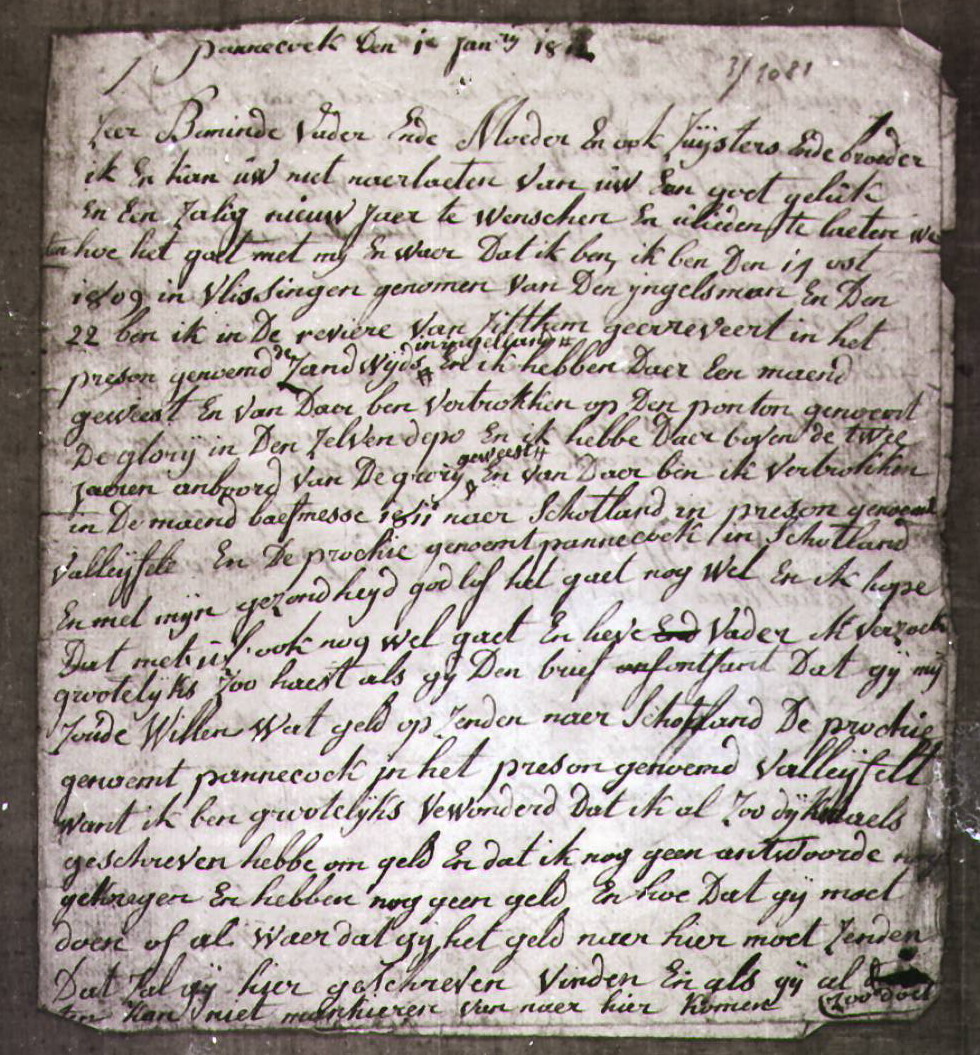 pannecock Den 1e Janry 18
3/ 2081
Zeer Beminde Vader Ende Moeder En ook Zuijsters Ende broeder
ik En kan üw niet naerlaeten Van üw Een goet gelük
En Een Zalig nieuw Jaer te wenschen En ülieden te laeten we
ten hoe het gaet met mij En waer Dat ik ben, ik ben Den 17 ost
1809 in Vlissingen genomen Van Den ijngelsman En Den
22 ben ik in De reviere Van Zittham geerreveert in het
preson genoemd de Zandwijds in ingeland En ik hebben Daer Een maend
geweest En van Daer ben Vertrokken op Den ponton genoemt
De glorij in Den Zelven depo En ik hebbe Daer boven de twee
Jaeren anboord Van De glorij geweest En Van Daer ben ik Vertrokken
in De maend baefmesse 1811 naer Schotland in preson genoemt
Valleijfelt En De prochie genoemt pannecock in Schotland
En met mijn gezondheijd god lof het gaet nog Wel En ik hope
Dat met ül ook nog wel gaet En lieve Vader ik Verzoek
grootelijks Zoo haest als gij Den brief ontfant Dat gij mij
Zoude Willen Wat geld op Zenden naer Schotland De prochie
genoemt pannecock jn het preson genoemd Valleijfelt
want ik ben grootelijks Vewonderd Dat ik al Zoo dijkmaels
geschreven hebbe om geld En dat ik nog geen antwoorde
gekregen En hebben nog geen geld En hoe Dat gij moet
doen of al Waer dat gij het geld naer hier moet Zenden
Dat Zal gij hier geschreven Vinden En als gij al
Zoo doet
ten kan niet mankieren van naer hier komen